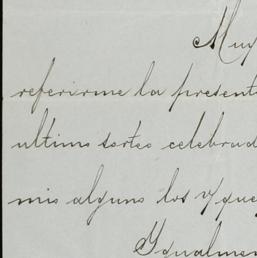 Muy
referirme la present
ultimo sorteo celebrad
mis alguno los y que
Ygualmen